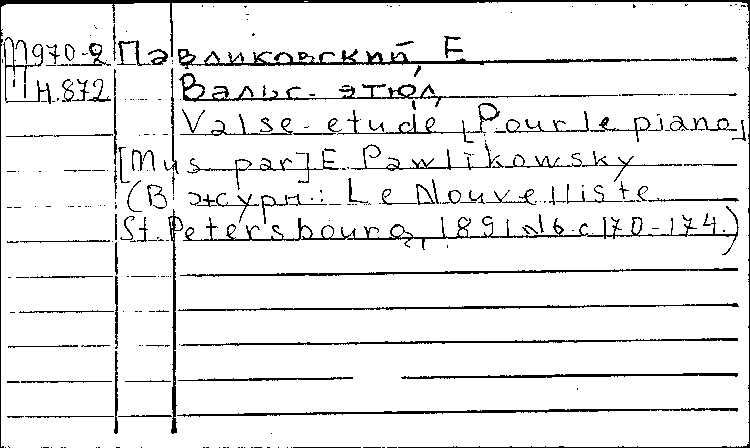 М970-2 Павликовский, Е
Н.872 Вальс-этюд,
Valse-etude [Pour le piano]
[Mus par] E Pawlikowsky
(В журн.: Le Nouvelliste
St. Petersbourg, 1891 №6 с 170-174.)